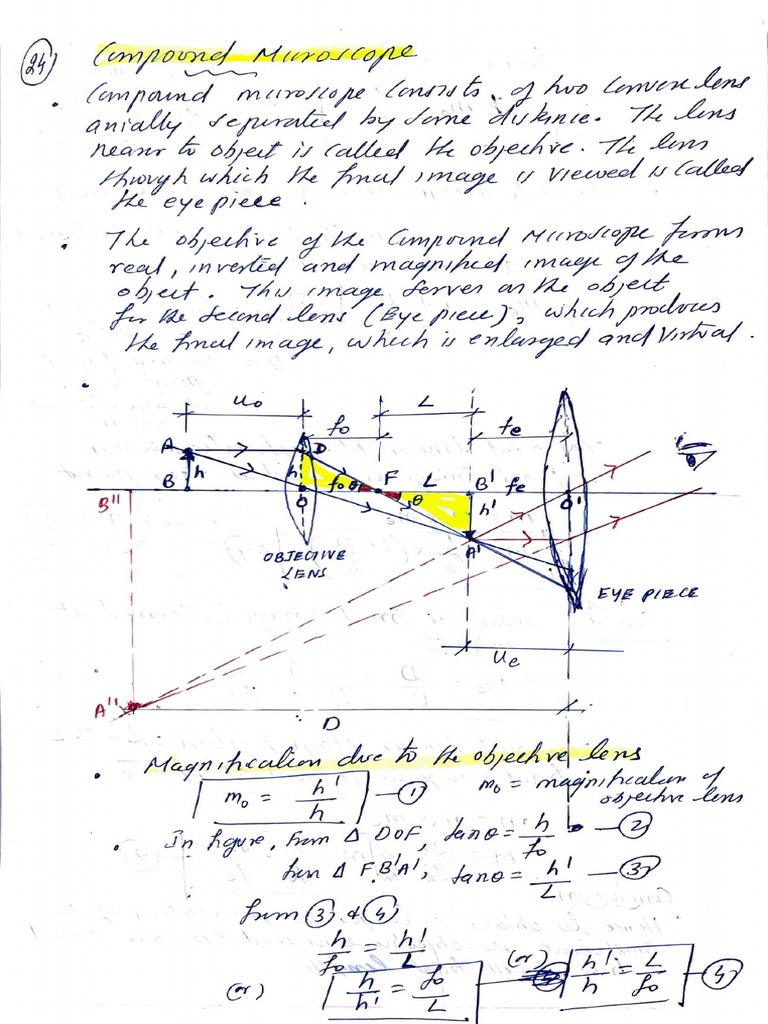 24
Compound Microscope
Compound microscope consists of two convex lens
axially separated by some distance. The lens
nearer to object is called the objective. The lens
through which the final image is viewed is called
the eye piece.
The objective of the Compound Microscope forms
real, inverted and magnified image of the
object. This image serves as the object
for the second lens (Eye piece), which produces
the final image, which is enlarged and Virtual.
uo L
fo fe
A D θ
h h F L B' fe
B O fo θ θ h' O'
B''
A'
OBJECTIVE
LENS
EYE PIECE
ue
A''
D
Magnification due to the objective lens
mo = h'/h — ① mo = magnification of
objective lens
In figure, From Δ DOF, tanθ = h/fo — ②
from Δ FB'A', tanθ = h'/L — ③
from ③ & ④
h/fo = h'/L
(or) h/h' = fo/L (or) h'/h = L/fo — ④